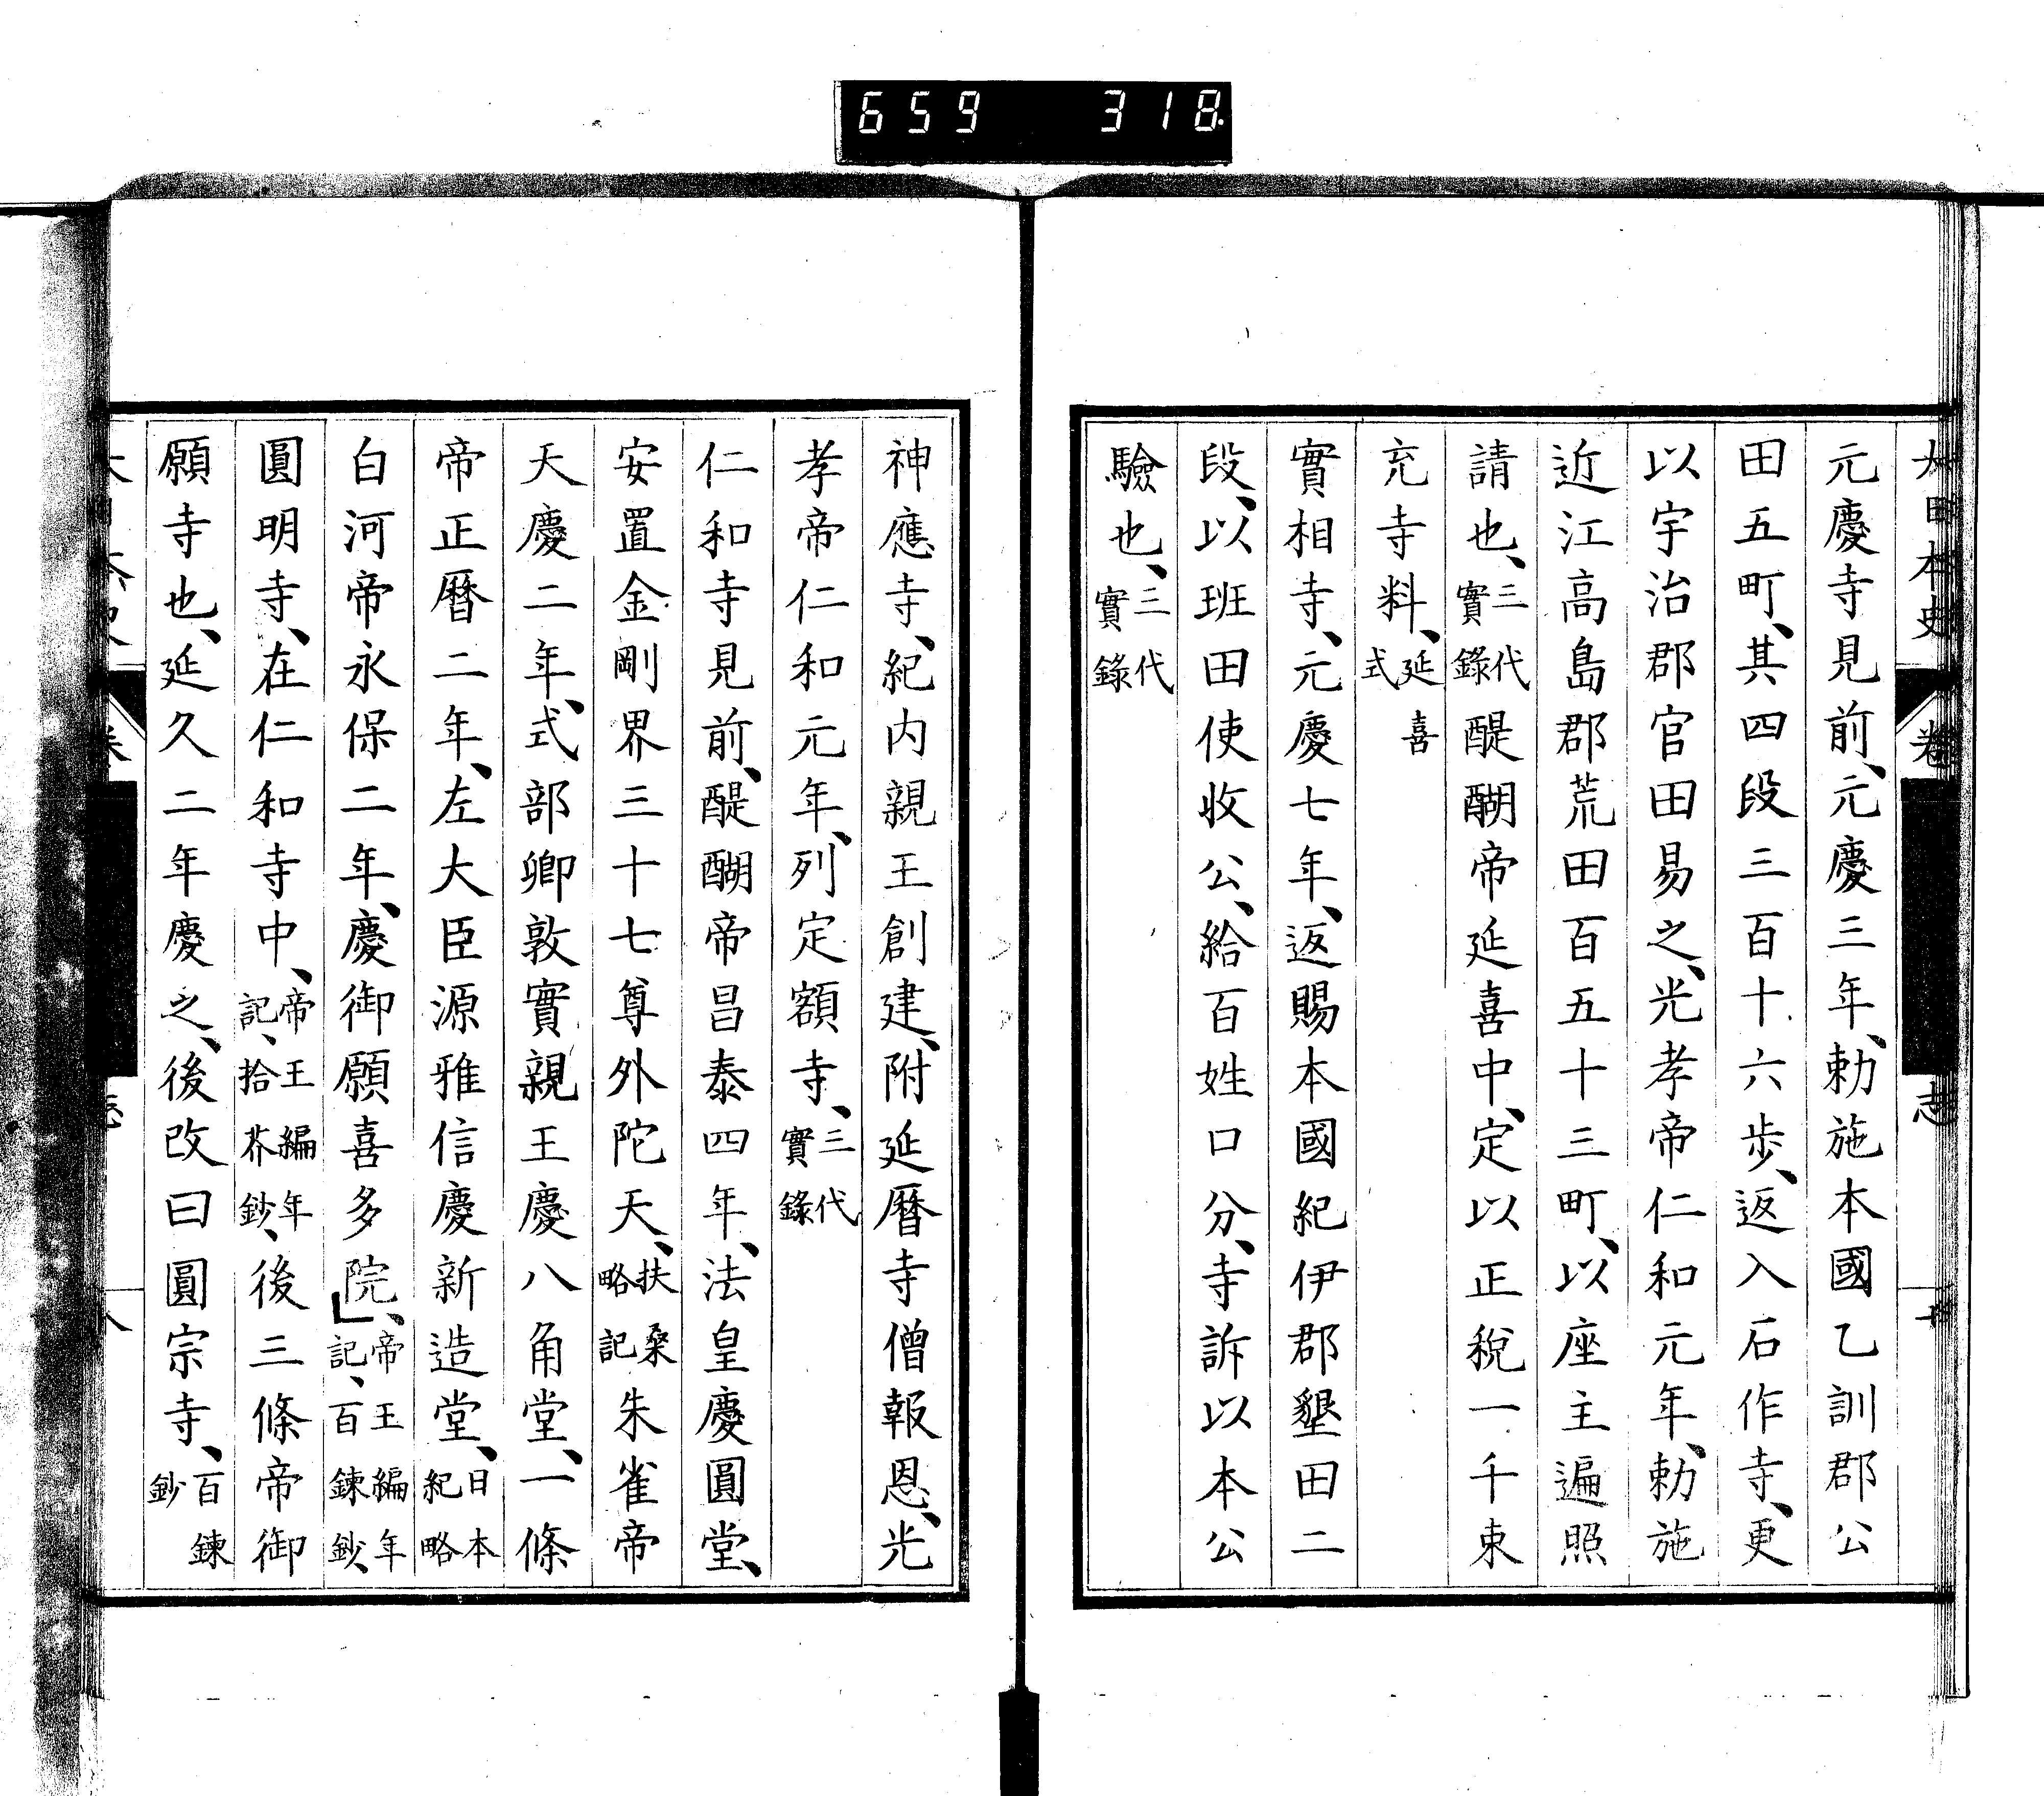 659 318
大日本史 卷 志 十
元慶寺見前、元慶三年、勅施本國乙訓郡公
田五町、其四段三百十六步、返入石作寺、更
以宇治郡官田易之、光孝帝仁和元年、勅施
近江高島郡荒田百五十三町、以座主遍照
請也、三代實錄醍醐帝延喜中、定以正稅一千束
充寺料、延喜式
實相寺、元慶七年、返賜本國紀伊郡墾田二
段、以班田使收公、給百姓口分、寺訴以本公
驗也、三代實錄
神應寺、紀内親王創建、附延曆寺僧報恩、光
孝帝仁和元年、列定額寺、三代實錄
仁和寺見前、醍醐帝昌泰四年、法皇慶圓堂、
安置金剛界三十七尊外陀天、扶桑略記朱雀帝
天慶二年、式部卿敦實親王慶八角堂、一條
帝正曆二年、左大臣源雅信慶新造堂、日本紀略
白河帝永保二年、慶御願喜多院、帝王編年記、百鍊鈔、
圓明寺、在仁和寺中、帝王編年記、拾芥鈔、後三條帝御
願寺也、延久二年慶之、後改曰圓宗寺、百鍊鈔